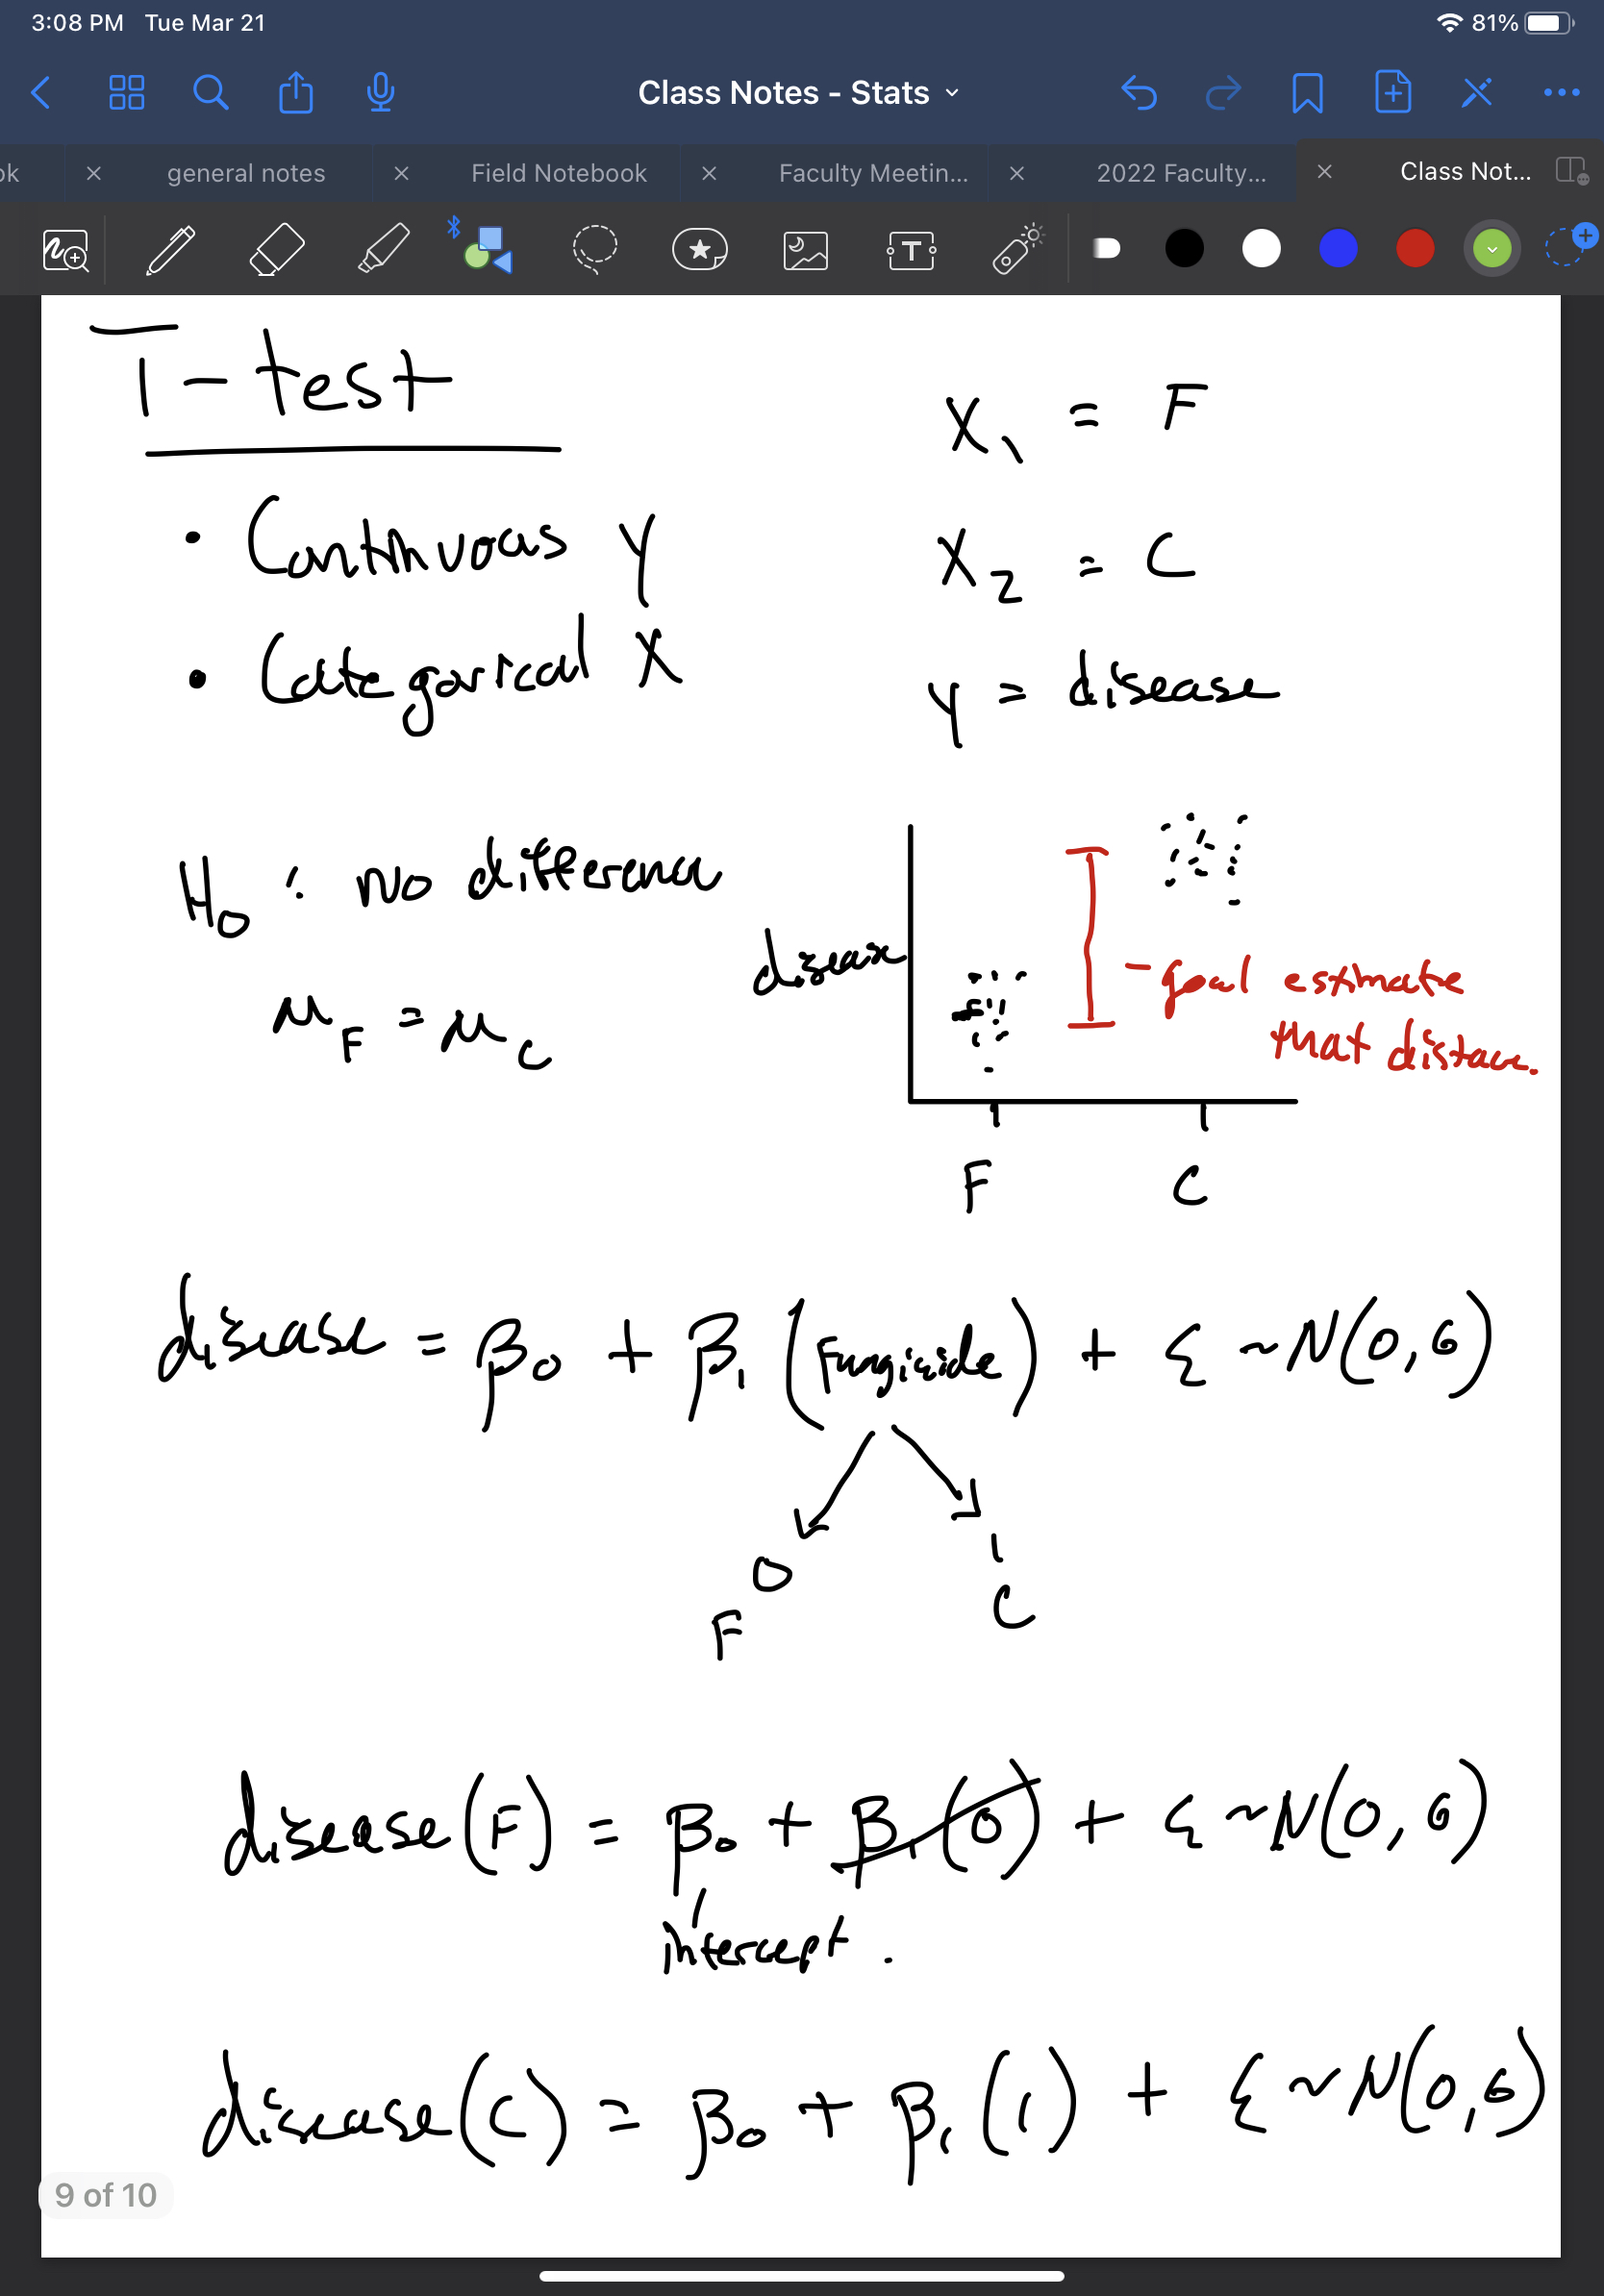 3:08 PM Tue Mar 21
81%
Class Notes - Stats
ok × general notes × Field Notebook × Faculty Meetin... × 2022 Faculty... × Class Not...
T-test
• Continuous Y
• Categorical X
X₁ = F
X₂ = C
y = disease
H₀ : no difference
μ_F = μ_C
disease
- goal estimate
that distance.
F C
disease = β₀ + β₁ (Fungicide) + ε ~ N(0, σ)
0 1
F C
disease(F) = β₀ + β₁(0) + ε ~ N(0, σ)
intercept.
disease(C) = β₀ + β₁(1) + ε ~ N(0, σ)
9 of 10